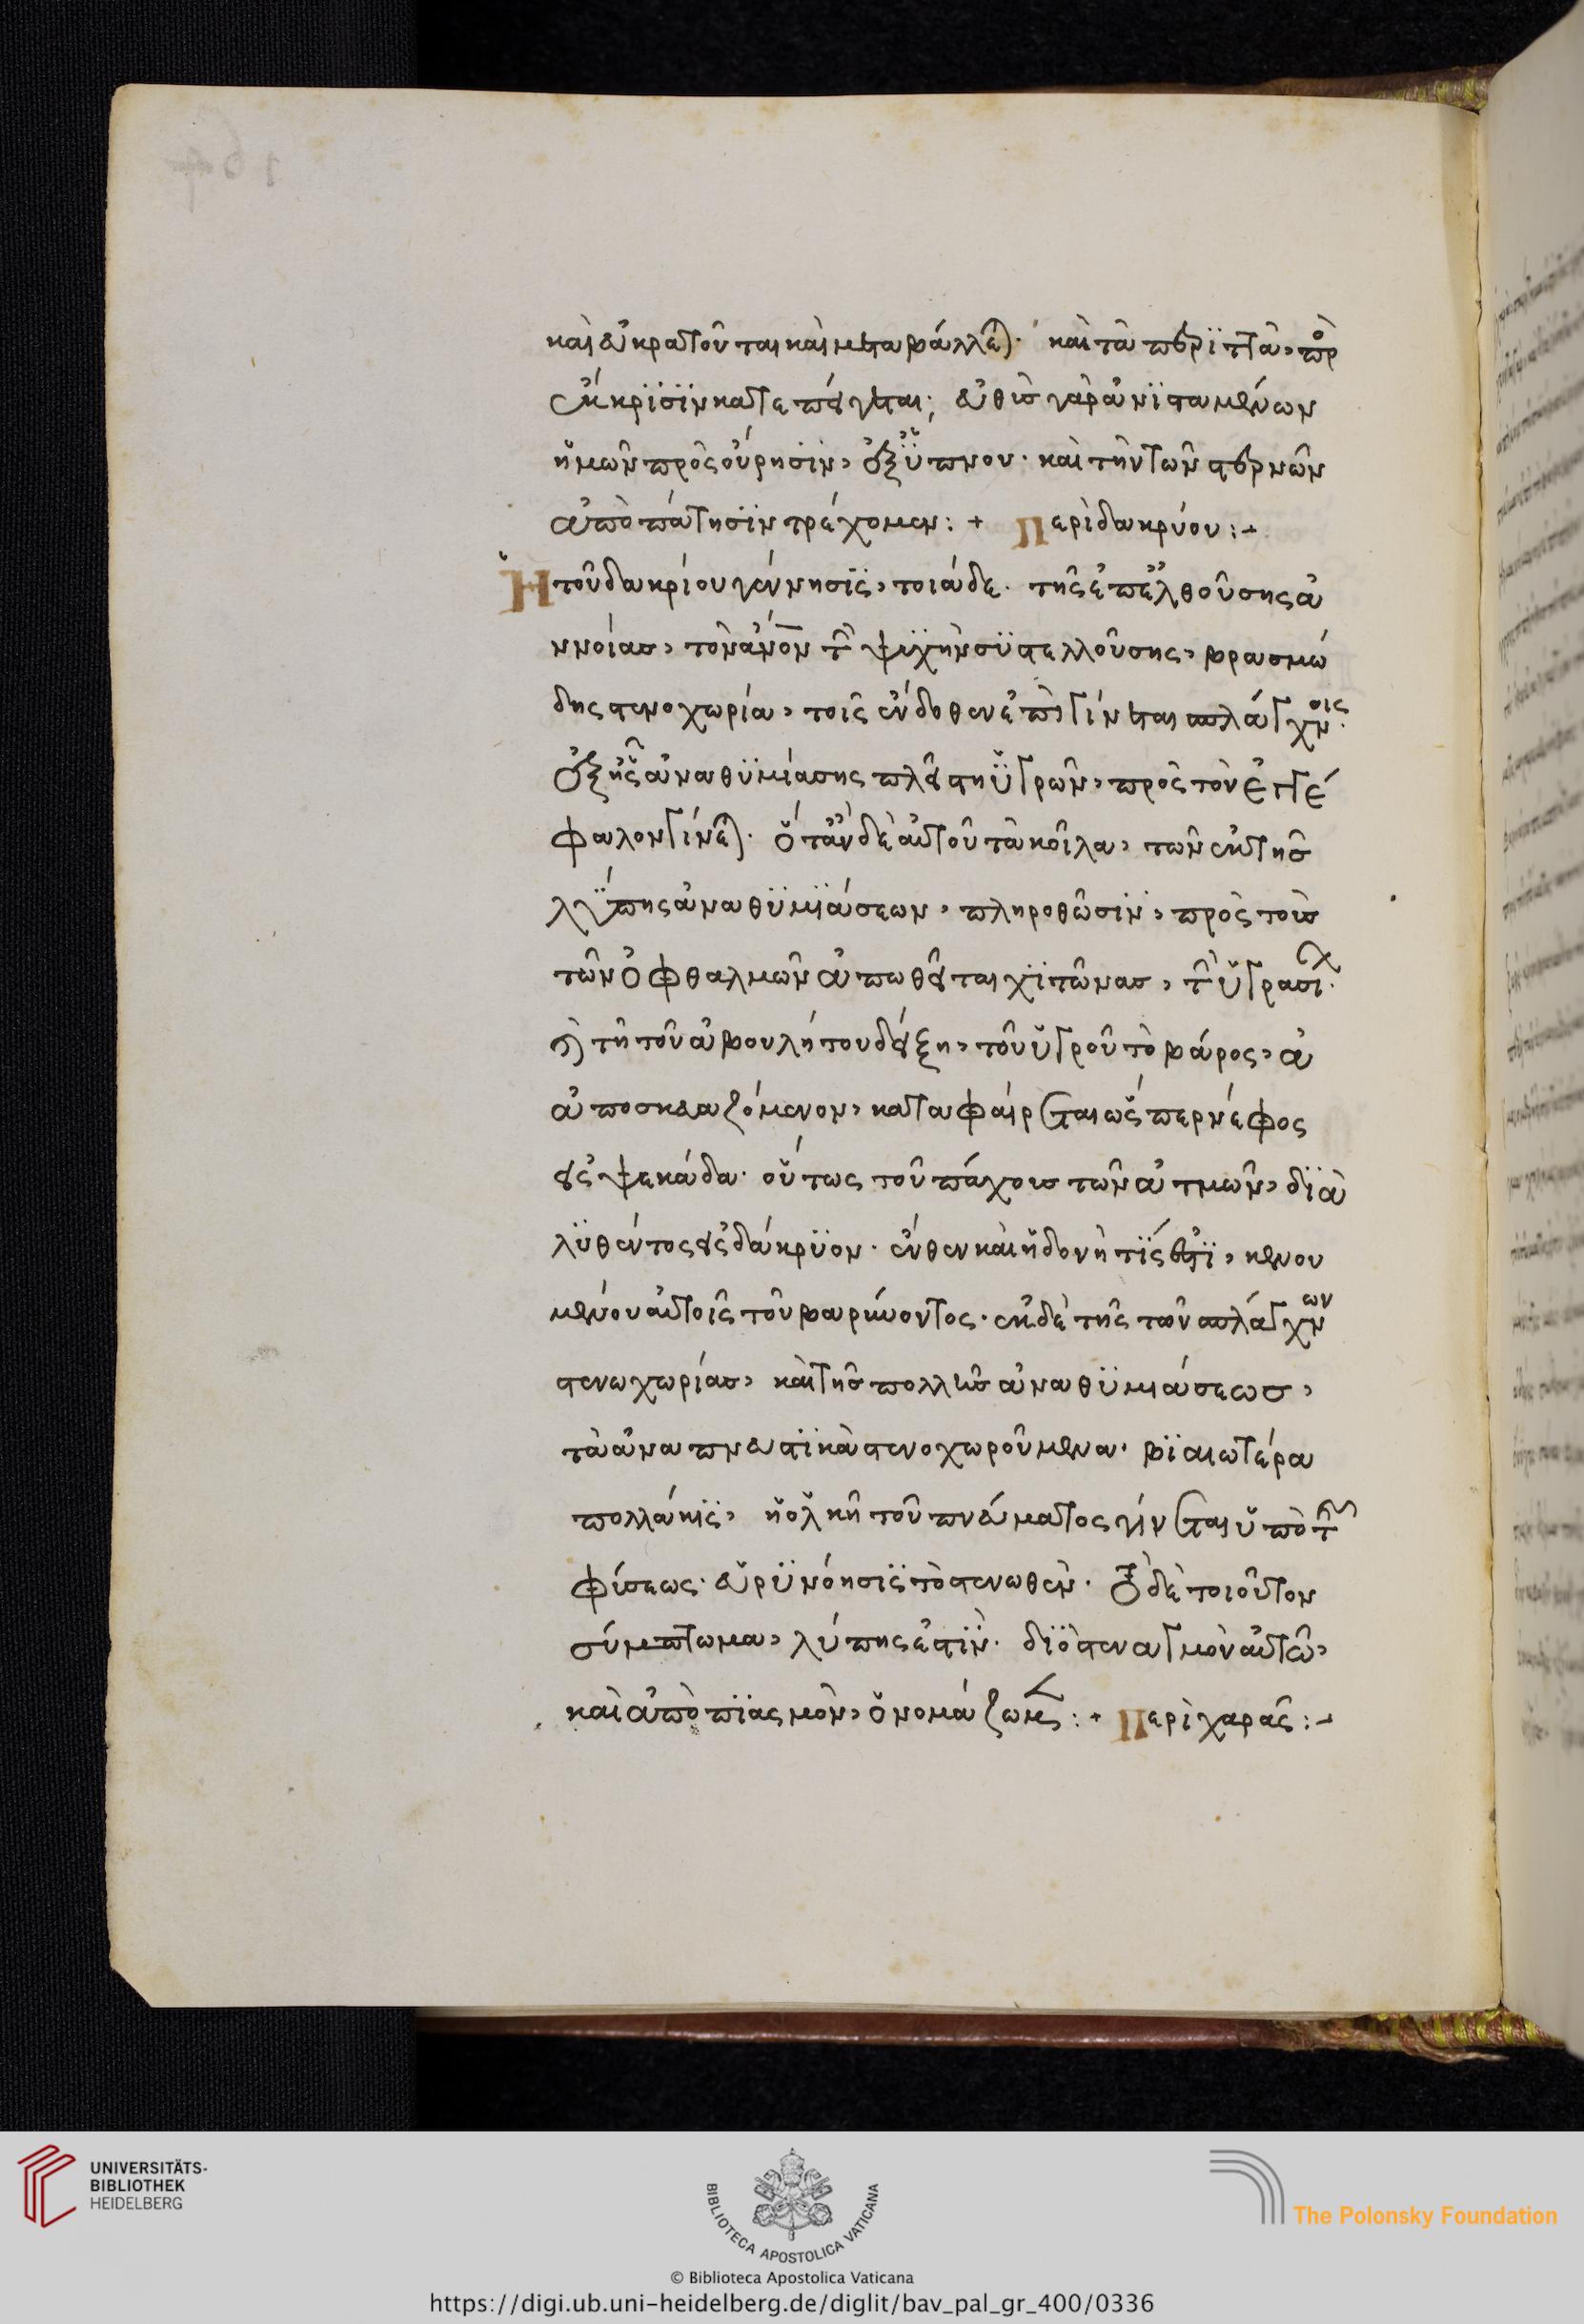 καὶ εὐκρατοῦνται καὶ μεταβάλλε). καὶ τὰ περϊττὰ, πρ
ἔκκρϊσϊν κατεπείγεται; εὐθὺσ γὰρ ἀνϊσταμένων
ἡμῶν πρὸς οὔρησϊν, ὀξϋπνον. καὶ τὴν τῶν στερνῶν
ἀποπάτησϊν τρέχομεν: + Περὶ δακρύου:-
Ἡ τοῦ δακρίου γέννησϊς, τοιάδε. τῆς ἐπελθούσης ἀ
ννοίασ, τὸν ἀνον τ ψυχὴν συστελλούσης, βρασμώ
δης στενοχωρία, τοῖς ἔνδοθεν ἐπιγίνεται σπλάγχνοις.
ὀξῆς ἀναθϋμιάσης πλείστη ὑγρῶν, πρὸς τὸν ἐγκέ
φαλον γίνε). ὅτὰν δὲ αὐτοῦ τὰ κοῖλα, τῶν ἐκ τῆσ
λύπης ἀναθϋμϊάσεων, πληροθῶσϊν, πρὸς τοὺσ
τῶν ὀφθαλμῶν ἀπωθεῖται χϊτῶνασ, τ ὑγρασι.
τῇ τοῦ ἀβουλήτου δείξη, τοῦ ὑγροῦ τὸ βάρος, ἀ
ἀποσκευαζόμενον, καταφαίρεται ὥσπερ νέφος
εἰς ψεκάδα. οὕτως τοῦ πάχουσ τῶν ἀτμῶν, δϊα
λϋθέντος εἰς δάκρϋον. ἔνθεν καὶ ἡδονὴ τϊς ἐστϊ, κενου
μένου αὐτοῖς τοῦ βαρύνοντος. ἐκ δὲ τῆς τῶν σπλάγχνων
στενωχωρίασ, καὶ τῆσ πολλῆσ ἀναθϋμιάσεωσ,
τὰ ἀναπνευστϊκὰ στενοχωρούμενα. βϊαιωτέρα
πολλάκϊς, ἡ ὁλκὴ τοῦ πνεύματος γίνεται ὑπὸ τ
φύσεως. εὐρϋνόησϊς τὸ στενωθέν. ὃ δὲ τοιοῦτον
σύμπτωμα, λύπης ἐστϊν. δϊὸ στεναγμὸν αὐτῶ,
καὶ ἀποπϊασμὸν, ὀνομάζωμ: + Περὶ χαρᾶς:-
UNIVERSITÄTS-
BIBLIOTHEK
HEIDELBERG
BIBLIOTECA APOSTOLICA VATICANA
The Polonsky Foundation
© Biblioteca Apostolica Vaticana
https://digi.ub.uni-heidelberg.de/diglit/bav_pal_gr_400/0336